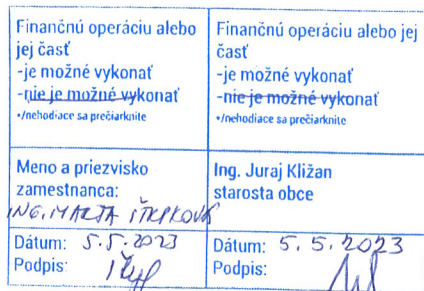 Finančnú operáciu alebo
jej časť
-je možné vykonať
-nie je možné vykonať
*/nehodiace sa prečiarknite
Meno a priezvisko
zamestnanca:
ING. MARTA
Dátum: 5.5.2023
Podpis:
Finančnú operáciu alebo jej
časť
-je možné vykonať
-nie je možné vykonať
*/nehodiace sa prečiarknite
Ing. Juraj Kližan
starosta obce
Dátum: 5.5.2023
Podpis: